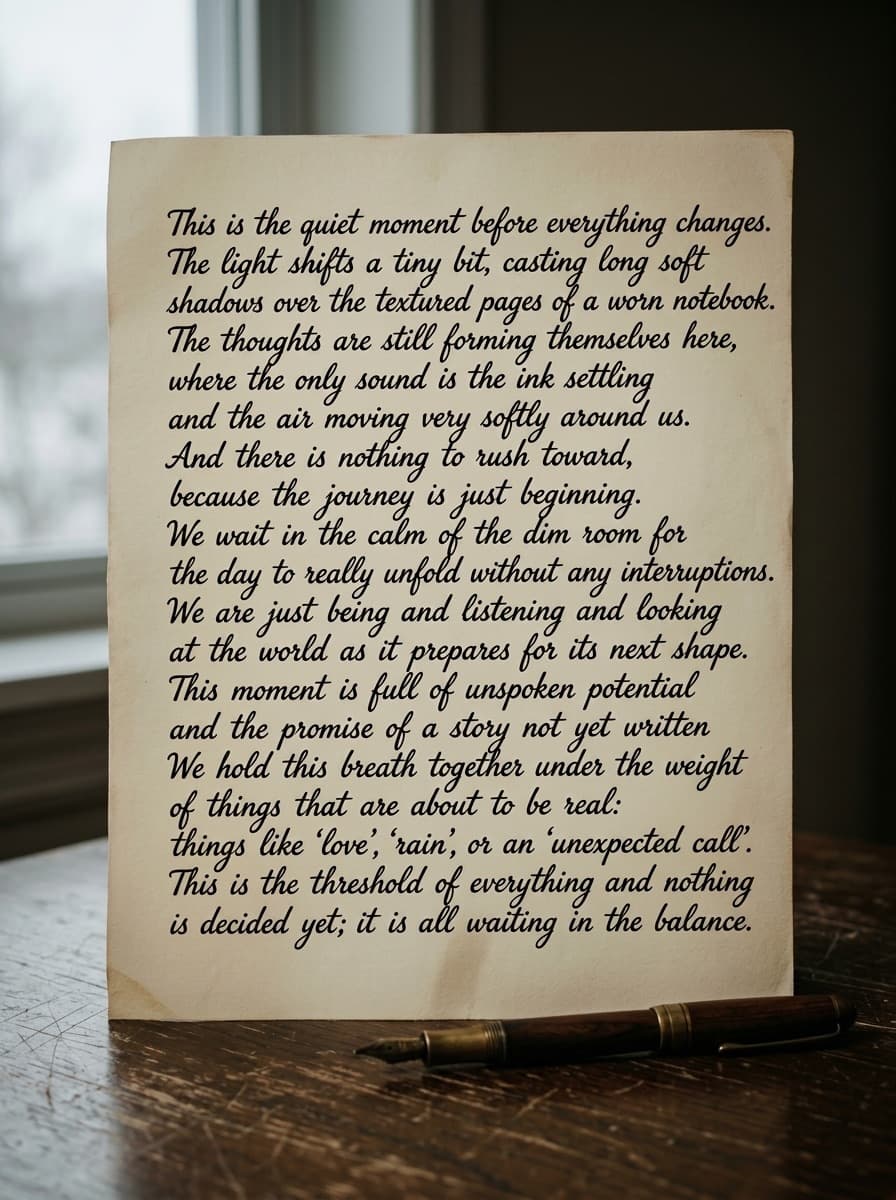 This is the quiet moment before everything changes.
The light shifts a tiny bit, casting long soft
shadows over the textured pages of a worn notebook.
The thoughts are still forming themselves here,
where the only sound is the ink settling
and the air moving very softly around us.
And there is nothing to rush toward,
because the journey is just beginning.
We wait in the calm of the dim room for
the day to really unfold without any interruptions.
We are just being and listening and looking
at the world as it prepares for its next shape.
This moment is full of unspoken potential
and the promise of a story not yet written
We hold this breath together under the weight
of things that are about to be real:
things like ‘love’, ‘rain’, or an ‘unexpected call’.
This is the threshold of everything and nothing
is decided yet; it is all waiting in the balance.